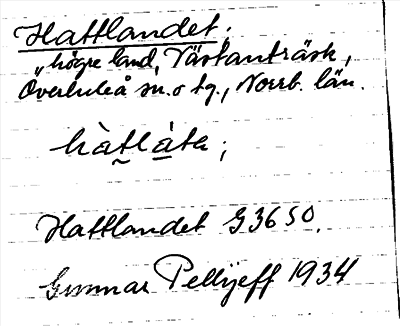 Hattlandet;
„högre land, Västanträsk,
Överluleå sn. o tg., Norrb. län.
hàtlàta;
Hattlandet G3650.
Gunnar Pellijeff 1934